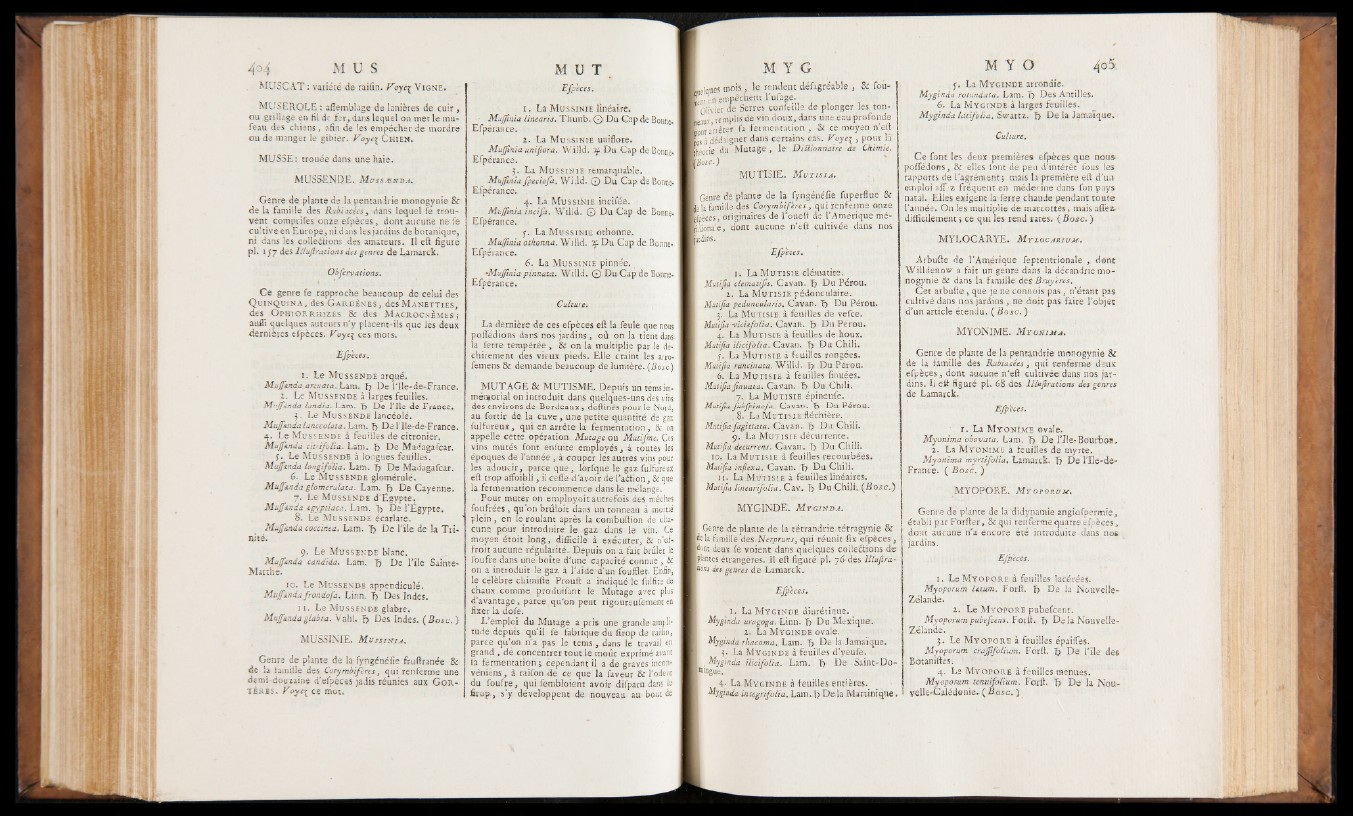 404 MUS
MUSCAT : variété de raiſin. Voyez VIGNE.
MUSEROLE : aſſemblage de lanières de cuir,
ou grillage en fil de fer, dans lequel on met le mu-
ſeau des chiens, afin de les empêcher de mordre
ou de manger le gibier. Voyez CHIEN.
MUSSE : trouée dans une haie.
MUSSENDE. MUSSÆNDA.
Genre de plante de la pentandrie monogynie &
de la famille des Rubiacées, dans lequel ſe trou-
vent compriſes onze eſpèces, dont aucune ne ſe
cultive en Europe, ni dans les jardins de botanique,
ni dans les collections des amateurs. Il eſt figuré
pl. 157 des Illuſtrations des genres de Lamarck.
Obſervations.
Ce genre ſe rapproche beaucoup de celui des
QUINQUINA, des GARDÈNES, des MANETTIES,
des OPHIORRHIZES & des MACROCNÈMES ;
auſſi quelques auteurs n'y placent-ils que les deux
dernières eſpèces. Voyez ces mots.
Eſpèces.
1. Le MUSSENDE arqué.
Muſſænda arcuata. Lam. ♄ De l'Ile-de-France.
2. Le MUSSENDE à larges feuilles.
Muſſænda landia. Lam. ♄ De l'Ile de France.
3. Le MUSSENDE lancéolé.
Muſſænda lanceolata. Lam. ♄ De l'Ile-de-France.
4. Le MUSSENDE à feuilles de citronier.
Muſſænda citrifolia. Lam. ♄ De Madagaſcar.
5. Le MUSSENDE à longues feuilles.
Muſſænda longifolia. Lam. ♄ De Madagaſcar.
6. Le MUSSENDE glomérulé.
Muſſænda glomerulata. Lam. ♄ De Cayenne.
7. Le MUSSENDE d'Egypte.
Muſſænda egyptiaca. Lam. ♄ De l'Egypte.
8. Le MUSSENDE écarlate.
Muſſænda coccinea. Lam. ♄ De l'île de la Tri-
nité.
9. Le MUSSENDE blanc.
Muſſænda candida. Lam. ♄ De l'île Sainte-
Marthe.
10. Le MUSSENDE appendiculé.
Muſſænda frondoſa. Linn. ♄ Des Indes.
11. Le MUSSENDE glabre.
Muſſænda glabra. Vahl. ♄ Des Indes. (Bosc.)
MUSSINIE. MUSSINIA.
Genre de plante de la ſyngénéſie fruſtranée &
de la famille des Corymbifères, qui renferme une
demi-douzaine d'eſpèces jadis réunies aux GOR-
TÈRES. Voyez ce mot.
MUT
Eſpèces.
1. La MUSSINIE linéaire.
Muſſinia linearis. Thunb. ☉ Du Cap de Bonne-
Eſpérance.
2. La MUSSINIE uniflore.
Muſſinia uniflora. Willd. ♃ Du Cap de Bonne-
Eſpérance.
3. La MUSSINIE remarquable.
Muſſinia ſpecioſa. Willd. ☉ Du Cap de Bonne-
Eſpérance.
4. La MUSSINIE inciſée.
Muſſinia inciſa. Willd. ☉ Du Cap de Bonne-
Eſpérance.
5. La MUSSINIE othonne.
Muſſinia othonna. Willd. ♃ Du Cap de Bonne-
Eſpérance.
6. La MUSSINIE pinnée.
Muſſinia pinnata. Willd. ☉ Du Cap de Bonne-
Eſpérance.
Culture.
La dernière de ces eſpèces eſt la ſeule que nous
poſſédions dans nos jardins, où on la tient dans
la ſerre tempérée, & on la multiplie par le dé-
chirement des vieux pieds. Elle craint les arro-
ſemens & demande beaucoup de lumière. (Bosc)
MUTAGE & MUTISME. Depuis un tems im-
mémorial on introduit dans quelques-uns des vins
des environs de Bordeaux, deſtinés pour le Nord,
au ſortir de la cuve, une petite quantité de gaz
ſulfureux, qui en arrête la fermentation, & on
appelle cette opération Mutage ou Mutiſme. Ces
vins mutés ſont enſuite employés, à toutes les
époques de l'année, à couper les autres vins pour
les adoucir, parce que, lorſque le gaz ſulfureux
eſt trop affoibli, il ceſſe d'avoir de l'action, & que
la fermentation recommence dans le mélange.
Pour muter on employoit autrefois des mèches
ſoufrées, qu'on brûloit dans un tonneau à moitié
plein, en le roulant après la combuſtion de cha-
cune pour introduire le gaz dans le vin. Ce
moyen étoit long, difficile à exécuter, & n'of-
froit aucune régularité. Depuis on a fait brûler le
ſoufre dans une boîte d'une capacité connue, &
on a introduit le gaz à l'aide d'un ſoufflet. Enfin,
le célèbre chimiſte Prouſt a indiqué le ſulfite de
chaux comme produiſant le Mutage avec plus
d'avantage, parce qu'on peut rigoureuſement en
fixer la doſe.
L'emploi du Mutage a pris une grande ampli-
tude depuis qu'il ſe fabrique du ſirop de raiſin,
parce qu'on n'a pas le tems, dans le travail en
grand, de concentrer tout le moût exprimé avant
ſa fermentation ; cependant il a de graves incon-
véniens, à raiſon de ce que la ſaveur & l'odeur
du ſoufre, qui ſembloient avoir diſparu dans le
ſirop, s'y développent de nouveau au bout de
MYG
quelques mois, le rendent déſagréable, & ſou-
vent en empêchent l'uſage.
Olivier de Serres conſeille de plonger les ton-
neaux, remplis de vin doux, dans une eau profonde
pour arrêter ſa fermentation, & ce moyen n'eſt
pas à dédaigner dans certains cas. Voyez, pour la
théorie du Mutage, le Dictionnaire de Chimie.
(Bosc.)
MUTISIE. MUTISIA.
Genre de plante de la ſyngénéſie ſuperflue &
de la famille des Corymbifères, qui renferme onze
eſpèces, originaires de l'oueſt de l'Amérique mé-
ridionale, dont aucune n'eſt cultivée dans nos
jardins.
Eſpèces.
1. La MUTISIE clématite.
Mutiſia clematiſis. Cavan. ♄ Du Pérou.
2. La MUTISIE pédonculaire.
Mutiſia peduncularis. Cavan. ♄ Du Pérou.
3. La MUTISIE à feuilles de veſce.
Mutiſia viciæfolia. Cavan. ♄ Du Pérou.
4. La MUTISIE à feuilles de houx.
Mutiſia ilicifolia. Cavan. ♄ Du Chili.
5. La MUTISIE à feuilles rongées.
Mutiſia runcinata. Willd. ♄ Du Pérou.
6. La MUTISIE à feuilles ſinuées.
Mutiſia ſinuata. Cavan. ♄ Du Chili.
7. La MUTISIE épineuſe.
Mutiſia ſubſpinoſa. Cavan. ♄ Du Pérou.
8. La MUTISIE fléchière.
Mutiſia ſagittata. Cavan. ♄ Du Chili.
9. La MUTISIE décurrente.
Mutiſia decurrens. Cavan. ♄ Du Chili.
10. La MUTISIE à feuilles recourbées.
Mutiſia inflexa. Cavan. ♄ Du Chili.
11. La MUTISIE à feuilles linéaires.
Mutiſia linearifolia. Cav. ♄ Du Chili. (Bosc.)
MYGINDE. MYGINDA.
Genre de plante de la tétrandrie tétragynie &
de la famille des Nerpruns, qui réunit ſix eſpèces,
dont deux ſe voient dans quelques collections de
plantes étrangères. Il eſt figuré pl. 76 des Illuſtra-
tions des genres de Lamarck.
Eſpèces.
1. La MYGINDE diurétique.
Myginda uragoga. Linn. ♄ Du Mexique.
2. La MYGINDE ovale.
Myginda rhacoma. Lam. ♄ De la Jamaïque.
3. La MYGINDE à feuilles d'yeuſe.
Myginda ilicifolia. Lam. ♄ De Saint-Do-
mingue.
4. La MYGINDE à feuilles entières.
Myginda integrifolia. Lam. ♄ De la Martinique.
MYO 405
5. La MYGINDE arrondie.
Myginda rotundata. Lam. ♄ Des Antilles.
6. La MYGINDE à larges feuilles.
Myginda latifolia. Swartz. ♄ De la Jamaïque.
Culture.
Ce ſont les deux premières eſpèces que nous
poſſédons, & elles ſont de peu d'intérêt ſous les
rapports de l'agrément ; mais la première eſt d'un
emploi aſſez fréquent en médecine dans ſon pays
natal. Elles exigent la ſerre chaude pendant toute
l'année. On les multiplie de marcottes, mais aſſez
difficilement ; ce qui les rend rares. (Bosc.)
MYLOCARYE. MYLOCARIUM.
Arbuſte de l'Amérique ſeptentrionale, dont
Willdenow a fait un genre dans la décandrie mo-
nogynie & dans la famille des Bruyères.
Cet arbuſte, que je ne connois pas, n'étant pas
cultivé dans nos jardins, ne doit pas faire l'objet
d'un article étendu. (Bosc.)
MYONIME. MYONIMA.
Genre de plante de la pentandrie monogynie &
de la famille des Rubiacées, qui renferme deux
eſpèces, dont aucune n'eſt cultivée dans nos jar-
dins. Il eſt figuré pl. 68 des Illuſtrations des genres
de Lamarck.
Eſpèces.
1. La MYONIME ovale.
Myonima obovata. Lam. ♄ De l'Ile-Bourbon.
2. La MYONIME à feuilles de myrte.
Myonima myrtifolia. Lamarck. ♄ De l'Ile-de-
France. (Bosc.)
MYOPORE. MYOPORUM.
Genre de plante de la didynamie angioſpermie,
établi par Forſter, & qui renferme quatre eſpèces,
dont aucune n'a encore été introduite dans nos
jardins.
Eſpèces.
1. Le MYOPORE à feuilles lacérées.
Myoporum lætum. Forſt. ♄ De la Nouvelle-
Zélande.
2. Le MYOPORE pubeſcent.
Myoporum pubeſcens. Forſt. ♄ De la Nouvelle-
Zélande.
3. Le MYOPORE à feuilles épaiſſes.
Myoporum craſſifolium. Forſt. ♄ De l'île des
Botaniſtes.
4. Le MYOPORE à feuilles menues.
Myoporum tenuifolium. Forſt. ♄ De la Nou-
velle-Calédonie. (Bosc.)